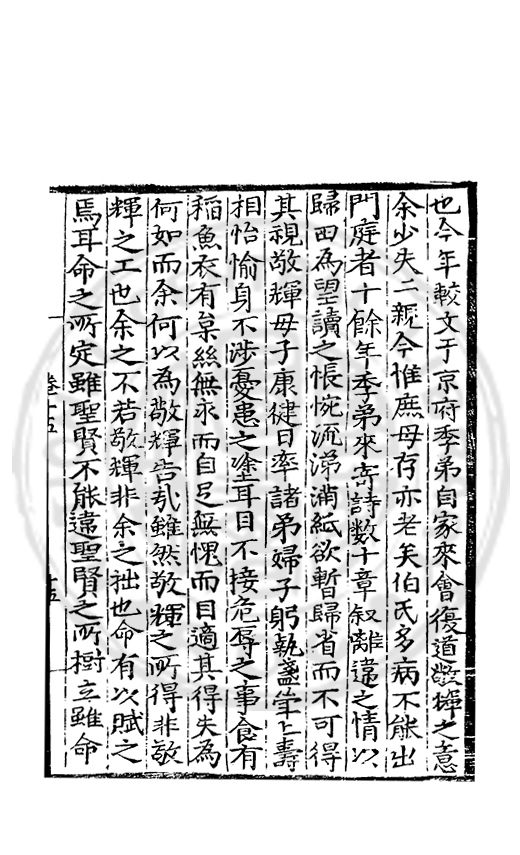 也今年較文于京府季弟自家來會復道敬輝之意
余少失二親今惟庶母存亦老矣伯氏多病不能出
門庭者十餘年季弟來寄詩数十章叙離違之情以
歸田為望讀之悵惋流涕滿紙欲暫歸省而不可得
其視敬輝母子康健日率諸弟婦子躬執盞斝上壽
相怡愉身不涉憂患之塗耳目不接危辱之事食有
稻魚衣有枲絲無求而自足無愧而自適其得失為
何如而余何以為敬輝告㢤雖然敬輝之所得非敬
輝之工也余之不若敬輝非余之拙也命有以賦之
焉耳命之所定雖聖賢不能違聖賢之所樹立雖命
卷十五
十五